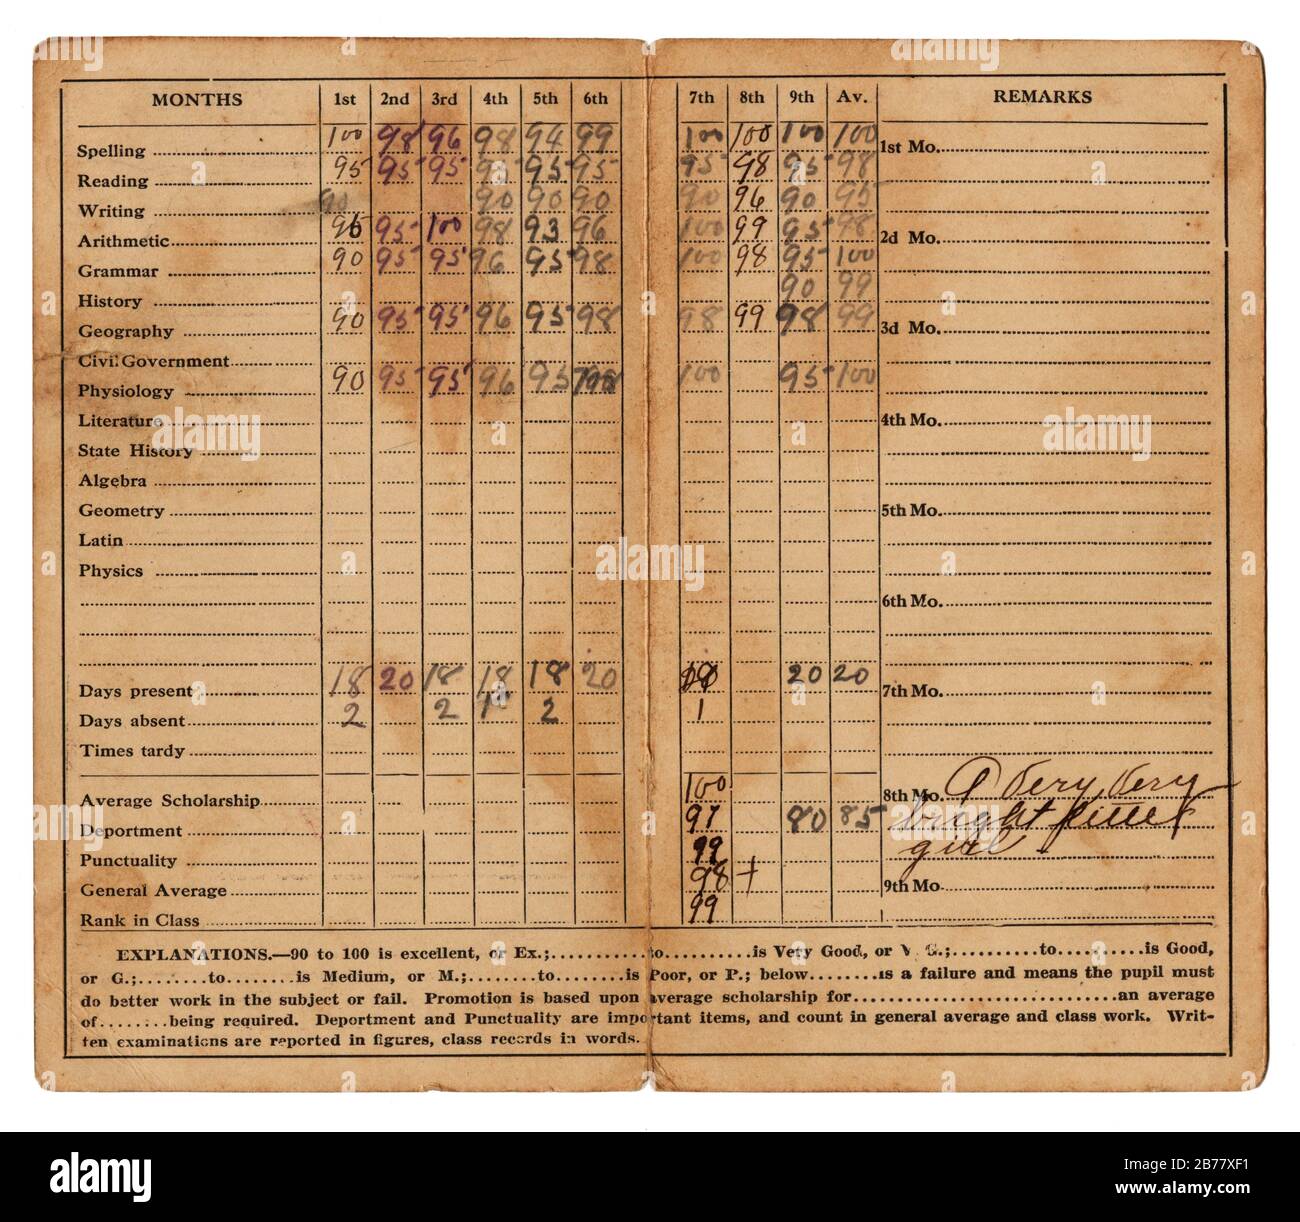 MONTHS 1st 2nd 3rd 4th 5th 6th 7th 8th 9th Av. REMARKS
Spelling 100 98 96 98 94 99 100 100 100 100 1st Mo.
Reading 95 95 95 95 95 95 95 98 95 98
Writing 90 90 90 90 90 96 90 95
Arithmetic 95 100 98 93 96 100 99 95 98 2d Mo.
Grammar 90 95 95 96 95 98 100 98 95 100
History 90 99
Geography 90 95 95 96 95 98 98 99 98 99 3d Mo.
Civil Government
Physiology 90 95 95 96 95 100 95 100
Literature 4th Mo.
State History
Algebra
Geometry 5th Mo.
Latin
Physics
6th Mo.
Days present 18 20 18 18 18 20 20 20 7th Mo.
Days absent 2 2 1 2 1
Times tardy
Average Scholarship 100 8th Mo. A Very Very
Deportment 97 80 85 bright little
Punctuality 99 girl
General Average 98 + 9th Mo.
Rank in Class 99
EXPLANATIONS.—90 to 100 is excellent, or Ex.;..........to..........is Very Good, or V. G.;..........to..........is Good,
or G.;........to........is Medium, or M.;.......to.......is Poor, or P.; below........is a failure and means the pupil must
do better work in the subject or fail. Promotion is based upon average scholarship for..............................an average
of........being required. Deportment and Punctuality are important items, and count in general average and class work. Writ-
ten examinations are reported in figures, class records in words.
alamy
Image ID: 2B77XF1
www.alamy.com